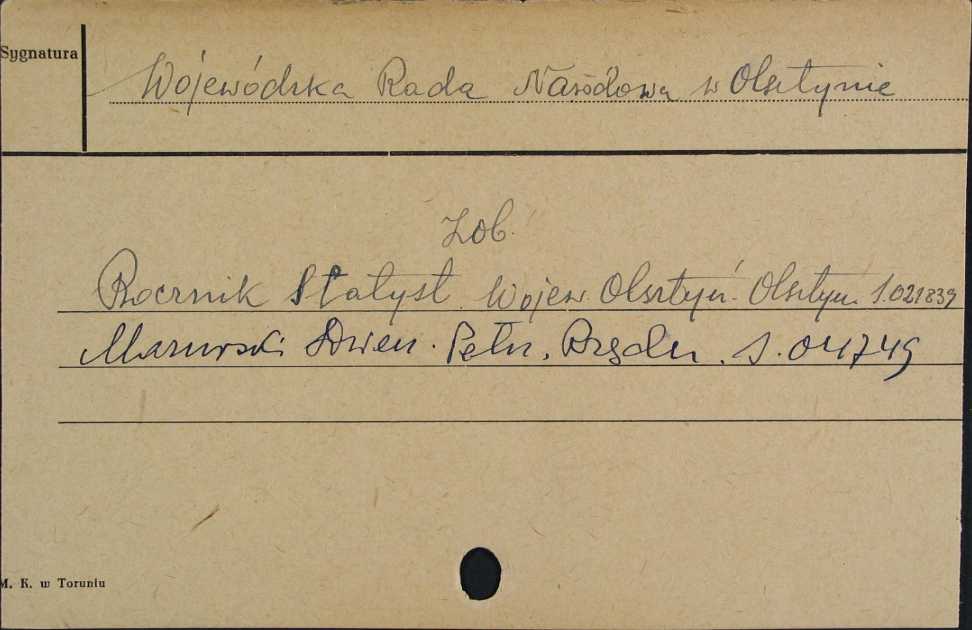 Sygnatura
Wojewódzka Rada Narodowa w Olsztynie
Zob.
Rocznik Statyst. Wojew. Olsztyń. Olsztyn S.021839
Mazurski Dzien. Pełn. S.04749
M. K. w Toruniu